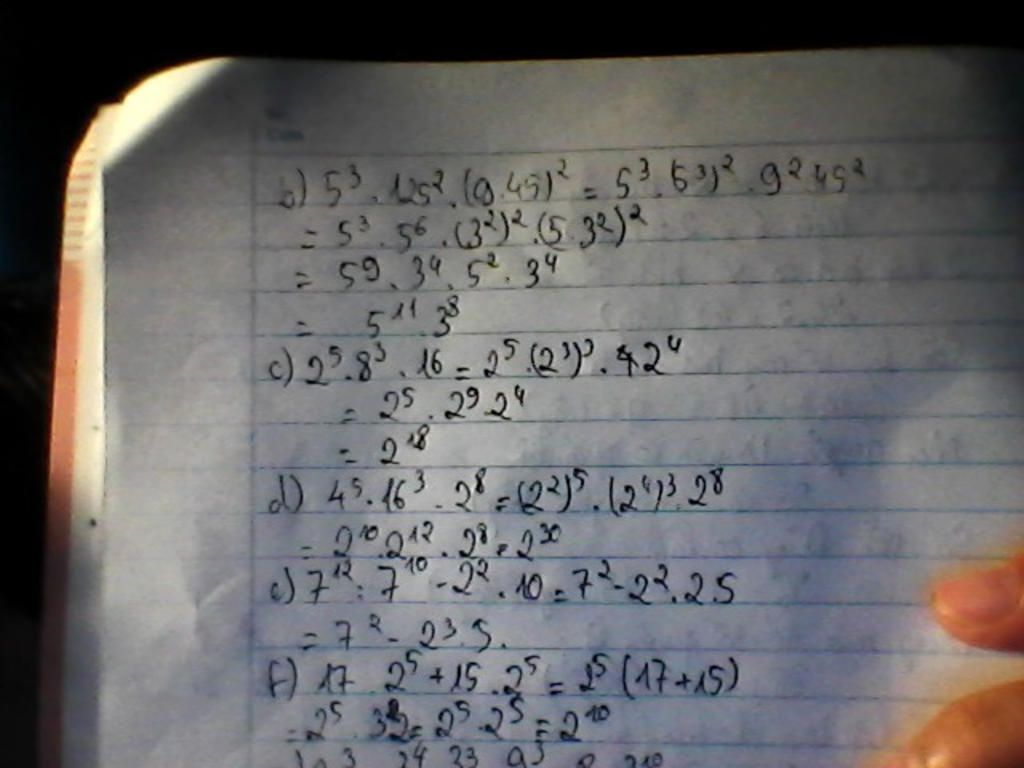 b) 5³ . 125² . (9.45)² = 5³ . (5³)² . 9² 45²
= 5³ . 5⁶ . (3²)² . (5.3²)²
= 5⁹ . 3⁴ . 5² . 3⁴
= 5¹¹ 3⁸
c) 2⁵ . 8³ . 16 = 2⁵ . (2³)³ . 2⁴
= 2⁵ . 2⁹ 2⁴
= 2¹⁸
d) 4⁵ . 16³ . 2⁸ = (2²)⁵ . (2⁴)³ . 2⁸
= 2¹⁰ . 2¹² . 2⁸ = 2³⁰
e) 7¹² : 7¹⁰ - 2² . 10 = 7² - 2² . 2.5
= 7² - 2³ . 5 .
f) 17 . 2⁵ + 15 . 2⁵ = 2⁵ (17 + 15)
= 2⁵ . 32 = 2⁵ . 2⁵ = 2¹⁰